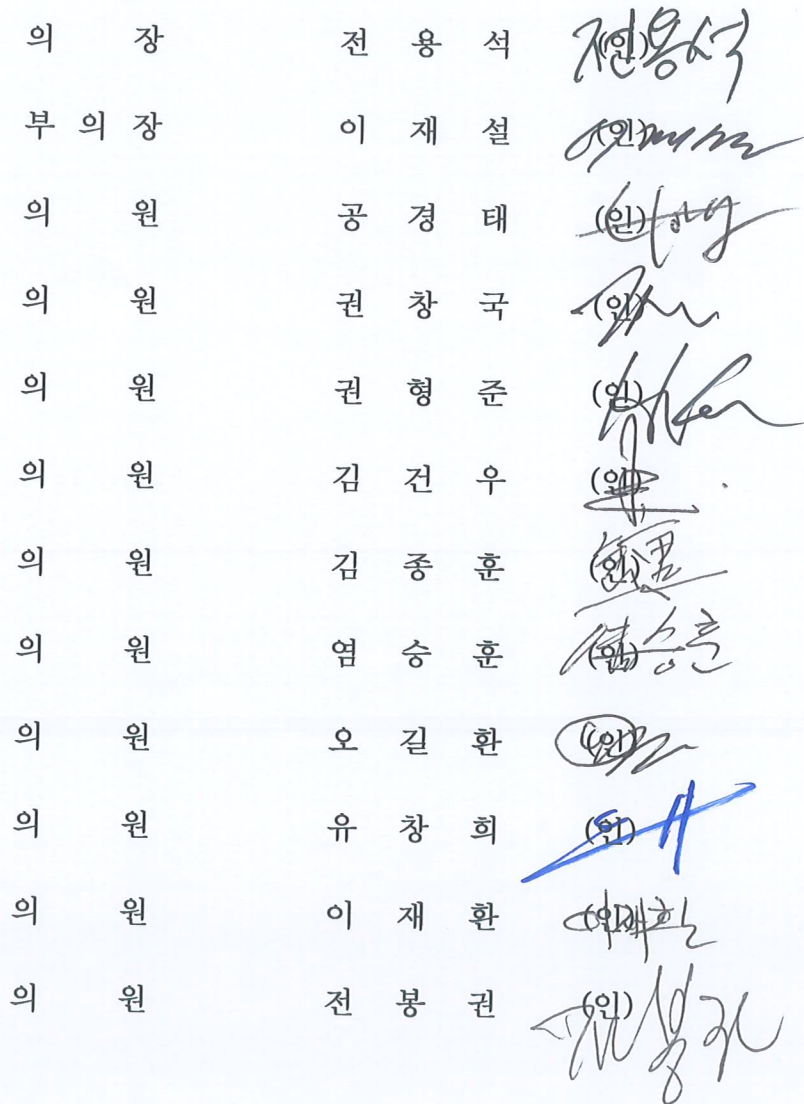 의 장 전 용 석 (인) 전용석
부 의 장 이 재 설 (인)
의 원 공 경 태 (인)
의 원 권 창 국 (인)
의 원 권 형 준 (인)
의 원 김 건 우 (인)
의 원 김 종 훈 (인)
의 원 염 승 훈 (인) 염승훈
의 원 오 길 환 (인)
의 원 유 창 희 (인)
의 원 이 재 환 (인) 이재환
의 원 전 봉 권 (인) 전봉권